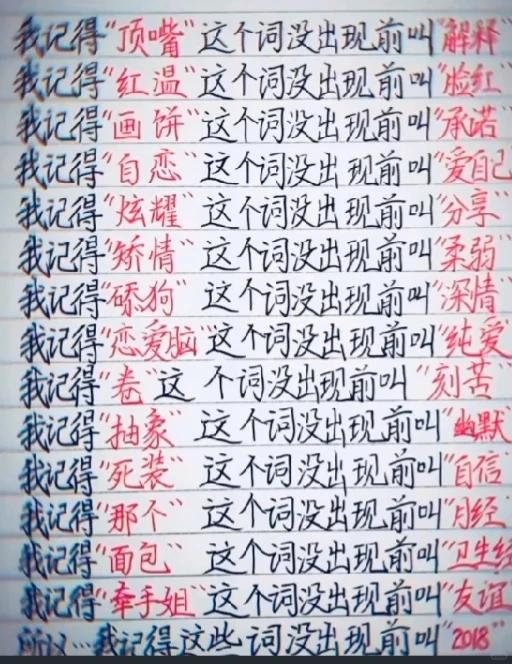 我记得“顶嘴”这个词没出现前叫“解释”
我记得“红温”这个词没出现前叫“脸红”
我记得“画饼”这个词没出现前叫“承诺”
我记得“自恋”这个词没出现前叫“爱自己
我记得“炫耀”这个词没出现前叫“分享”
我记得“矫情”这个词没出现前叫“柔弱”
我记得“舔狗”这个词没出现前叫“深情”
我记得“恋爱脑”这个词没出现前叫“纯爱
我记得“卷”这个词没出现前叫“刻苦”
我记得“抽象”这个词没出现前叫“幽默
我记得“死装”这个词没出现前叫“自信”
我记得“那个”这个词没出现前叫“月经”
我记得“面包”这个词没出现前叫“卫生经
我记得“牵手姐”这个词没出现前叫“友谊
所以…我记得这些词没出现前叫“2018”